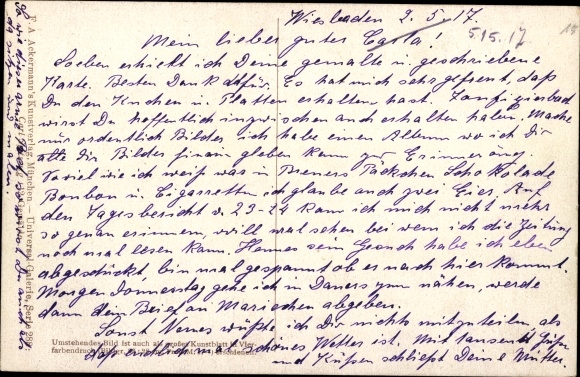 Wiesbaden 2.5.17.
5.5.17
Mein lieber guter
Soeben erhielt ich Deine gemalte u. geschriebene
Karte. Besten Dank dafür. Es hat mich sehr gefreut, daß
Du den Kuchen u. Platten erhalten hast. Zanfizienbad
wirst Du hoffentlich inzwischen auch erhalten haben. Mache
nur ordentlich Bilder, ich habe einen Album wo ich Dir
alle die Bilder hinein kleben kann zur Erinnerung
Soviel wie ich weiß war in Päckchen Schokolade
Bonbon u. Zigaretten ich glaube auch zwei Eier. Auf
den Tagesbericht v. 23-24 kann ich mich nicht mehr
so genau erinnern, will mal sehen bei wem ich die Zeitung
noch mal lesen kann. Hannes sein Gesuch habe ich eben
abgeschickt, bin mal gespannt ob er nach hier kommt.
Morgen Donnerstag gehe ich in Dauers zum nähen, werde
dann den Brief an Mariechen abgeben.
Sonst Neues wüßte ich Dir nichts mitzuteilen, als
daß endlich mal schönes Wetter ist. Mit tausend Grüßen
und Küßen schließt Deine Mutter.
F. A. Ackermann's Kunstverlag, München — Universal-Galerie, Serie
Umstehendes Bild ist auch als großes Kunstblatt in Vier-
farbendruck